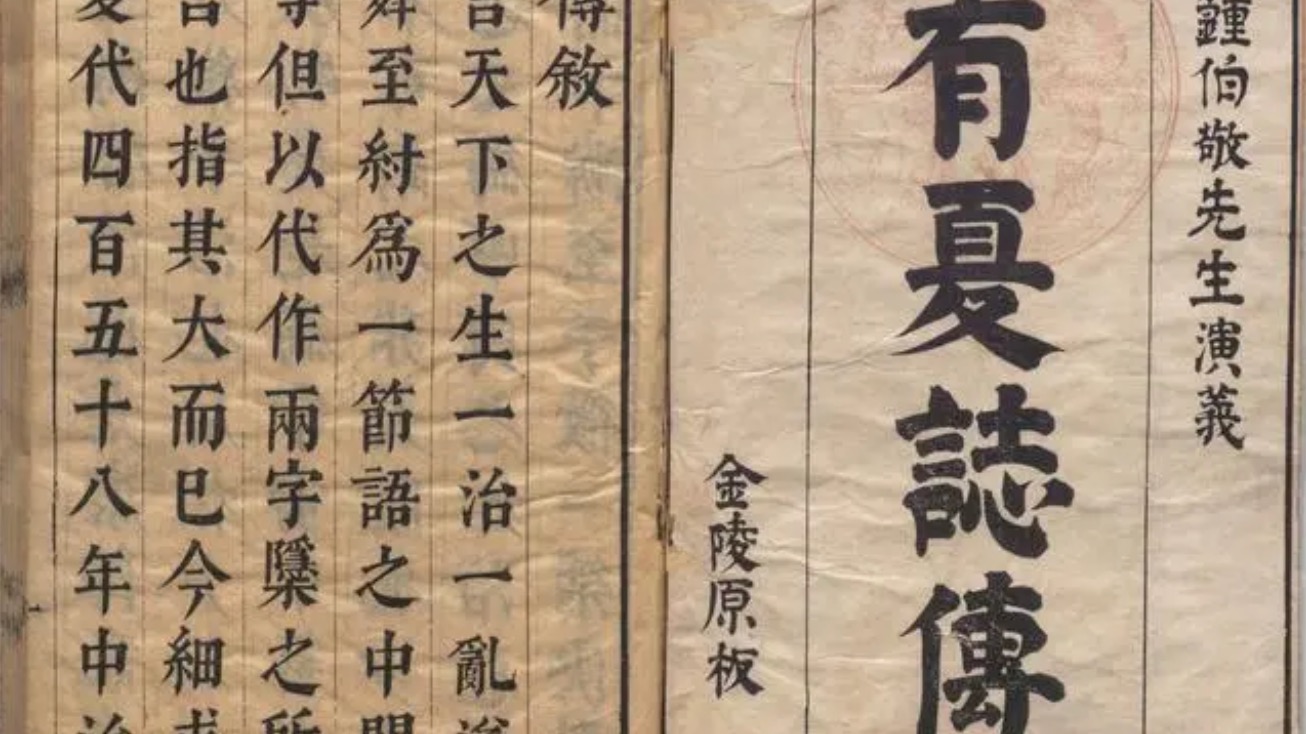 鍾伯敬先生演義
有夏誌傳
金陵原板
傳敘
言天下之生一治一亂說
舜至紂爲一節語之中間
等但以代作兩字隱櫽之所
言也指其大而巳今細求
夏代四百五十八年中治